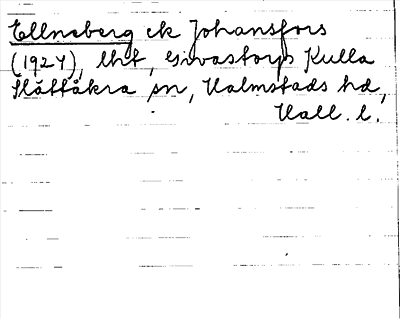 Ellnaberg ek Johansfors
(1924), lht, Givastorps Kulla
Slättåkra sn, Halmstads hd,
Hall. l.